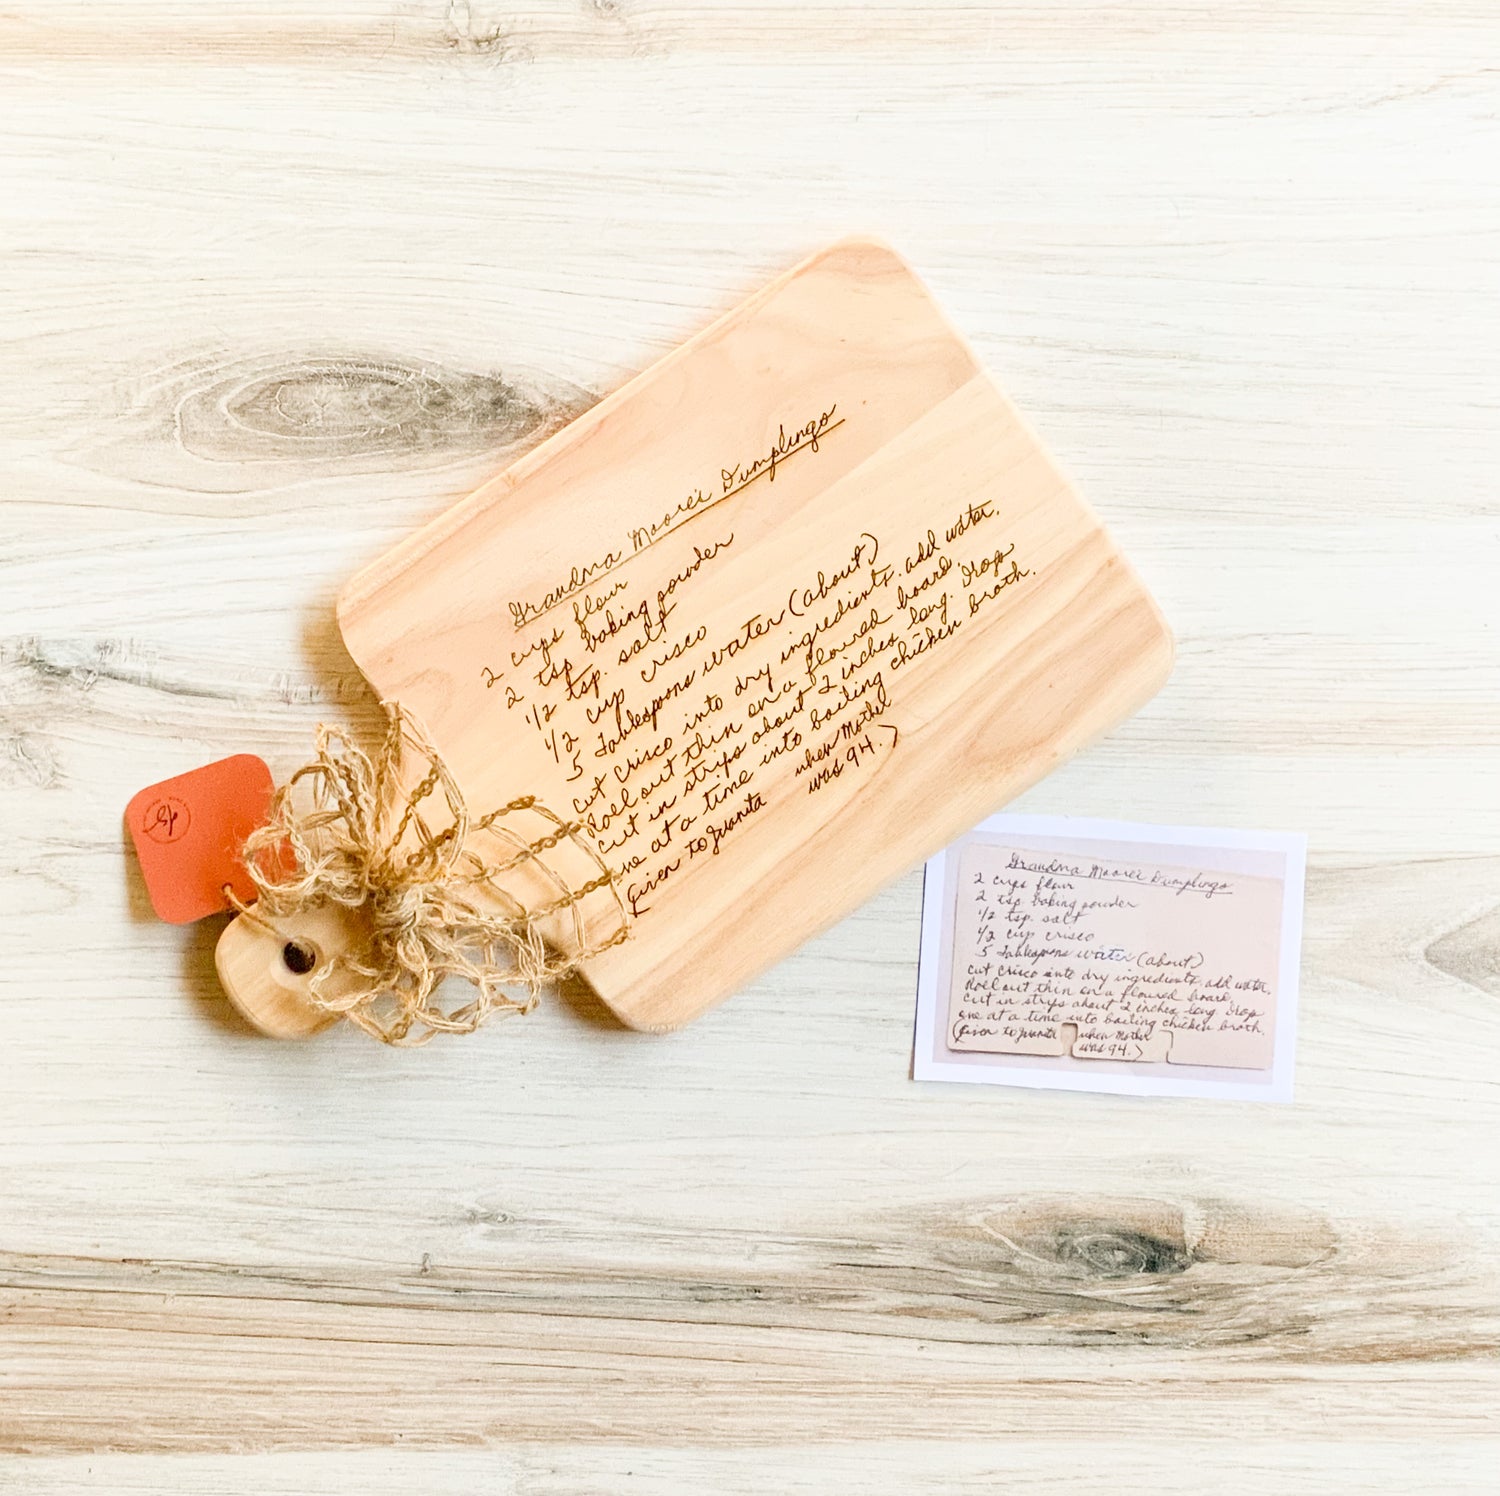 Grandma Moore's Dumplings
2 cups flour
2 tsp baking powder
1/2 tsp. salt
1/2 cup crisco
5 Tablespoons water (about)
cut crisco into dry ingredients. add water.
Roll out thin on a floured board.
Cut in strips about 2 inches long. Drop
one at a time into boiling chicken broth.
(Given to Juanita when Mother
was 94.)
Grandma Moore's Dumplings
2 cups flour
2 tsp. baking powder
1/2 tsp. salt
1/2 cup crisco
5 Tablespoons water (about)
cut crisco into dry ingredients. add water.
Roll out thin on a floured board.
Cut in strips about 2 inches long. Drop
one at a time into boiling chicken broth.
(Given to Juanita when Mother
was 94.)